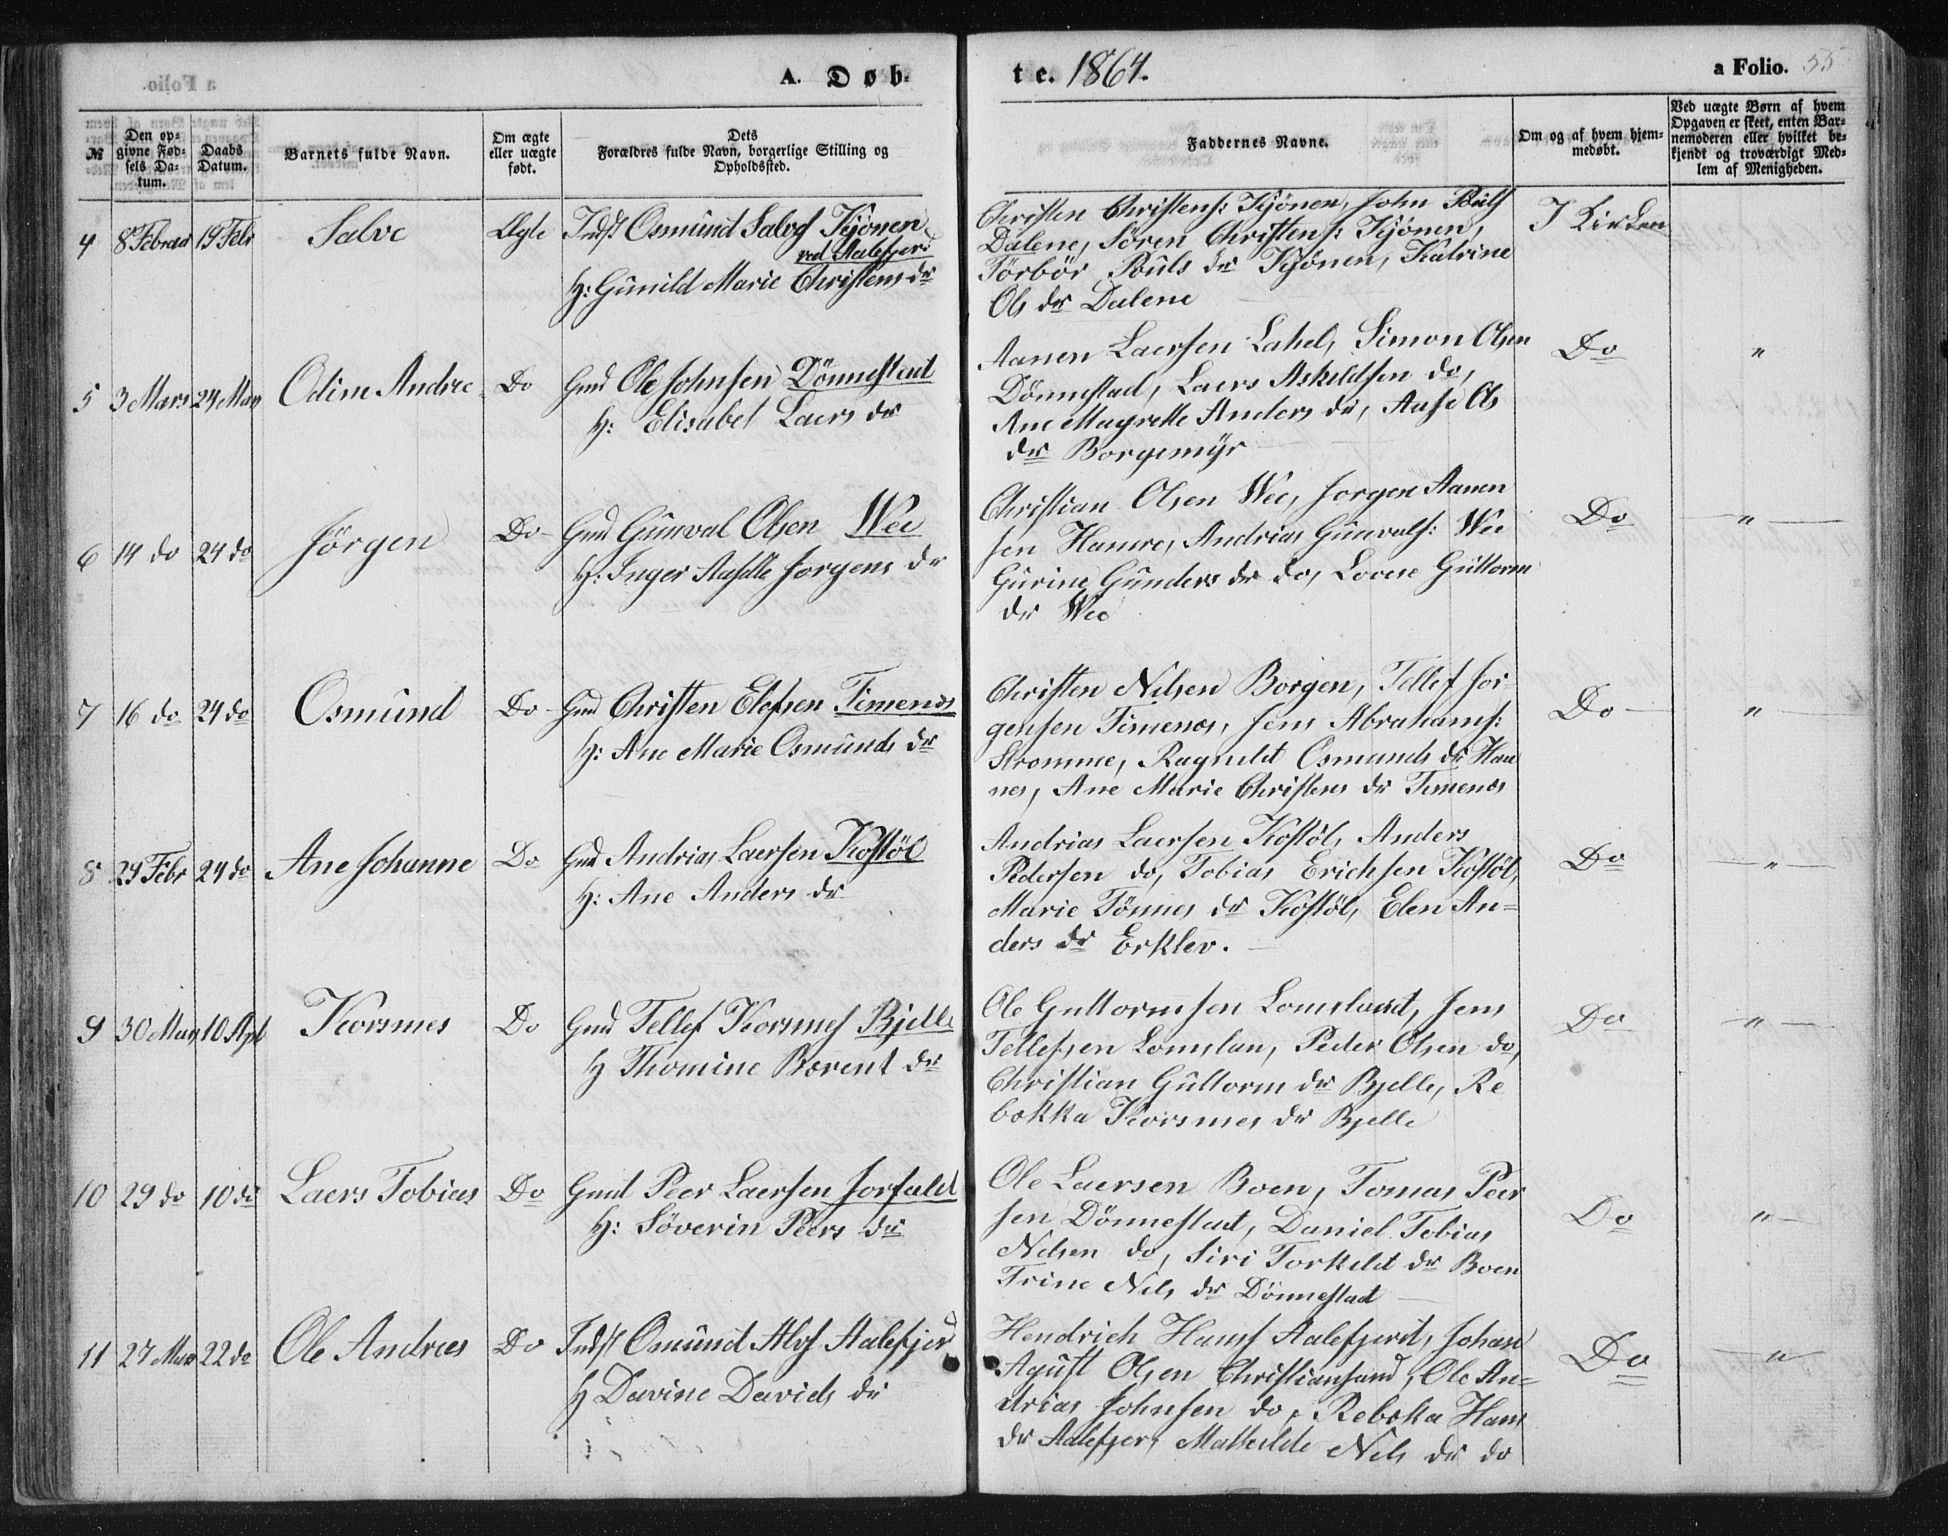 a Folio.
A. Døb-
te. 1864.
a Folio. 55
№
Den op-
givne Fød-
sels Da-
tum.
Daabs
Datum.
Barnets fulde Navn.
Om ægte
eller uægte
født.
Dets
Forældres fulde Navn, borgerlige Stilling og
Opholdssted.
Faddernes Navne.
Om og af hvem hjem-
medøbt.
Ved uægte Børn af hvem
Opgaven er skeet, enten Bar-
nemoderen eller hvilket be-
kjendt og troværdigt Med-
lem af Menigheden.
4 8 Februar 19 Febr Salve Ægte Indst Osmund Salves Kjönen
ved Aalefjer
H: Gunild Marie Christens dr
Christen Christens: Kjönen, John Pouls
Dalene, Sören Christens: Kjönen,
Törbör Pouls dr Kjönen, Katrine
Ols dr Dalene
I Kirken
5 3 Mars 24 Mars Odine Andree Do Gmd Ole Johnsen Dönnestad
H: Elisabet Laers dr
Aanen Laersen Lahel, Simon Olsen
Dönnestad, Laers Askildsen do,
Ane Magrette Anders dr, Aase Ols
dr Borgemyr
Do "
6 14 do 24 do Jörgen Do Gmd Gunval Olsen Wee
H: Inger Aaselle Jorgens dr
Christian Olsen Wee, Jorgen Aanen
sen Hamre, Andrias Gunvals: Wee
Gurine Gunders dr do, Lovise Guttorm
dr Wee
Do "
7 16 do 24 do Osmund Do Gmd Christen Elefsen Timenes
H: Ane Marie Osmunds dr
Christen Nilsen Borgen, Tellef Jor-
gensen Timenes, Jens Abrahams:
Stromme, Ragnild Osmunds dr Haa
nes, Ane Marie Christens dr Timenes
Do "
8 24 Febr 24 do Ane Johanne Do Gmd Andrias Laersen Kostöl
H: Ane Anders dr
Andrias Laersen Kostöl, Anders
Pedersen do, Tobias Erichsen Kostöl,
Marie Tönnes dr Kostöl, Elen An=
ders dr Erklev.
Do "
9 30 Mars 10 Apl Korsmes Do Gmd Tellef Korsmes Bjelle
H Thomine Berent dr
Ole Guttormsen Lomsland, Jens
Tellefsen Lomslan, Peder Olsen do,
Christian Guttorm dr Bjelle, Re
bekka Korsmes dr Bjelle
Do "
10 29 do 10 do Laers Tobias Do Gmd Peer Laersen Jorfald
H: Söverin Peers dr
Ole Laersen Boen, Tomas Peer
sen Dönnestad, Daniel Tobias
Nilsen do, Siri Torkild dr Boen
Trine Nils dr Dönnestad
Do "
11 27 Mars 22 do Ole Andreas Do Indst Osmund Alvs Aalefjer
H Davine Davids dr
Hendrich Hans Aalefjerd, Johan
Agust Olsen Christiansand, Ole An=
drias Johnsen do, Rebeka Hans
dr Aalefjer, Mathilde Nils dr do
Do "